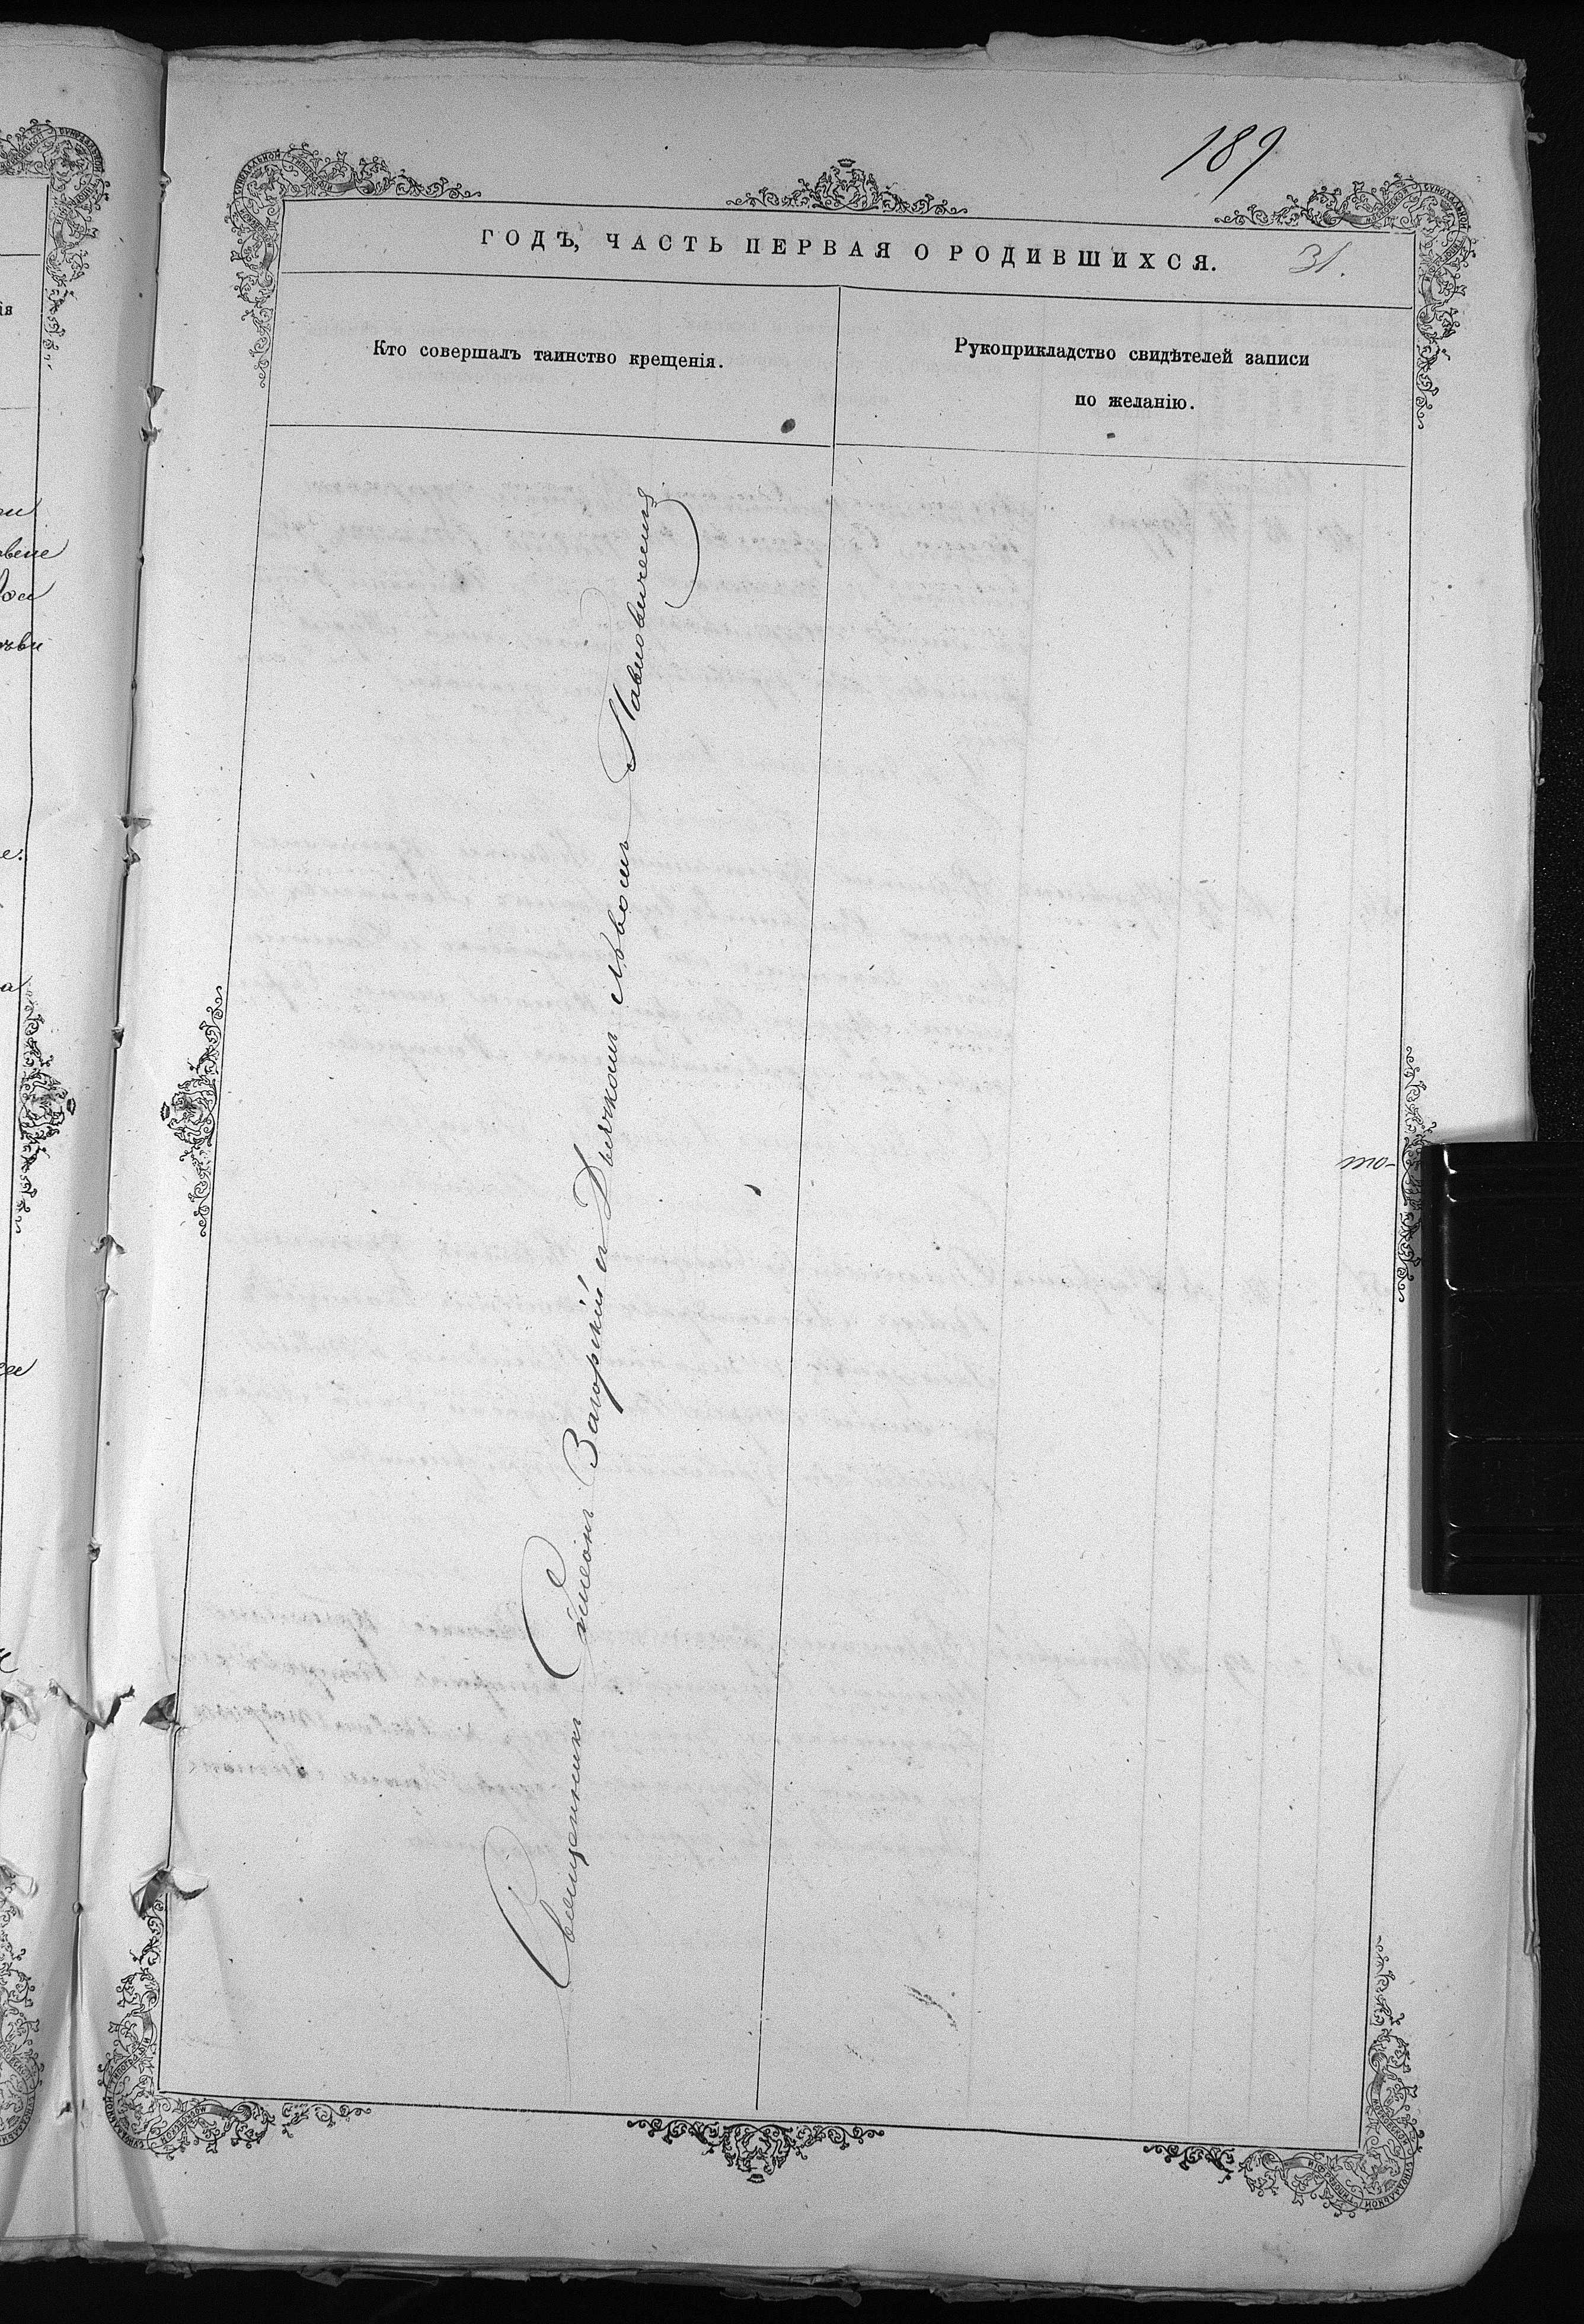 189
ГОДЪ, ЧАСТЬ ПЕРВАЯ О РОДИВШИХСЯ.
31.
Кто совершалъ таинство крещенія.
Рукоприкладство свидѣтелей записи
по желанію.
Священникъ Симеонъ Загорскій съ Дьячкомъ Львомъ
то-